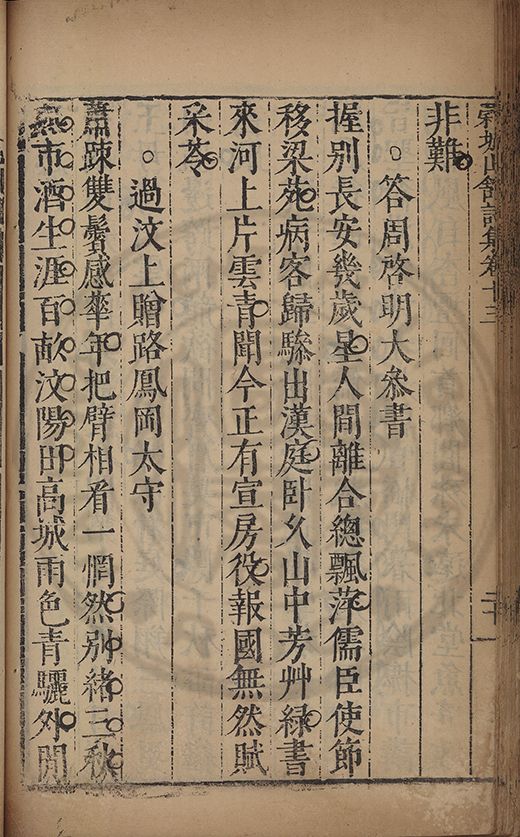 穀城山舘詩集卷十三
非難
○答周啓明大叅書
握别長安幾歲星人間離合總飄萍儒臣使節
移梁苑病客歸驂出漢庭卧久山中芳艸綠書
來河上片雲青聞今正有宣房役報國無然賦
采苓
○過汶上贈路鳳岡太守
蕭踈雙鬢感華年把臂相看一惘然别緒三秋
燕市酒生涯百畝汶陽田高城雨色青驪外閒